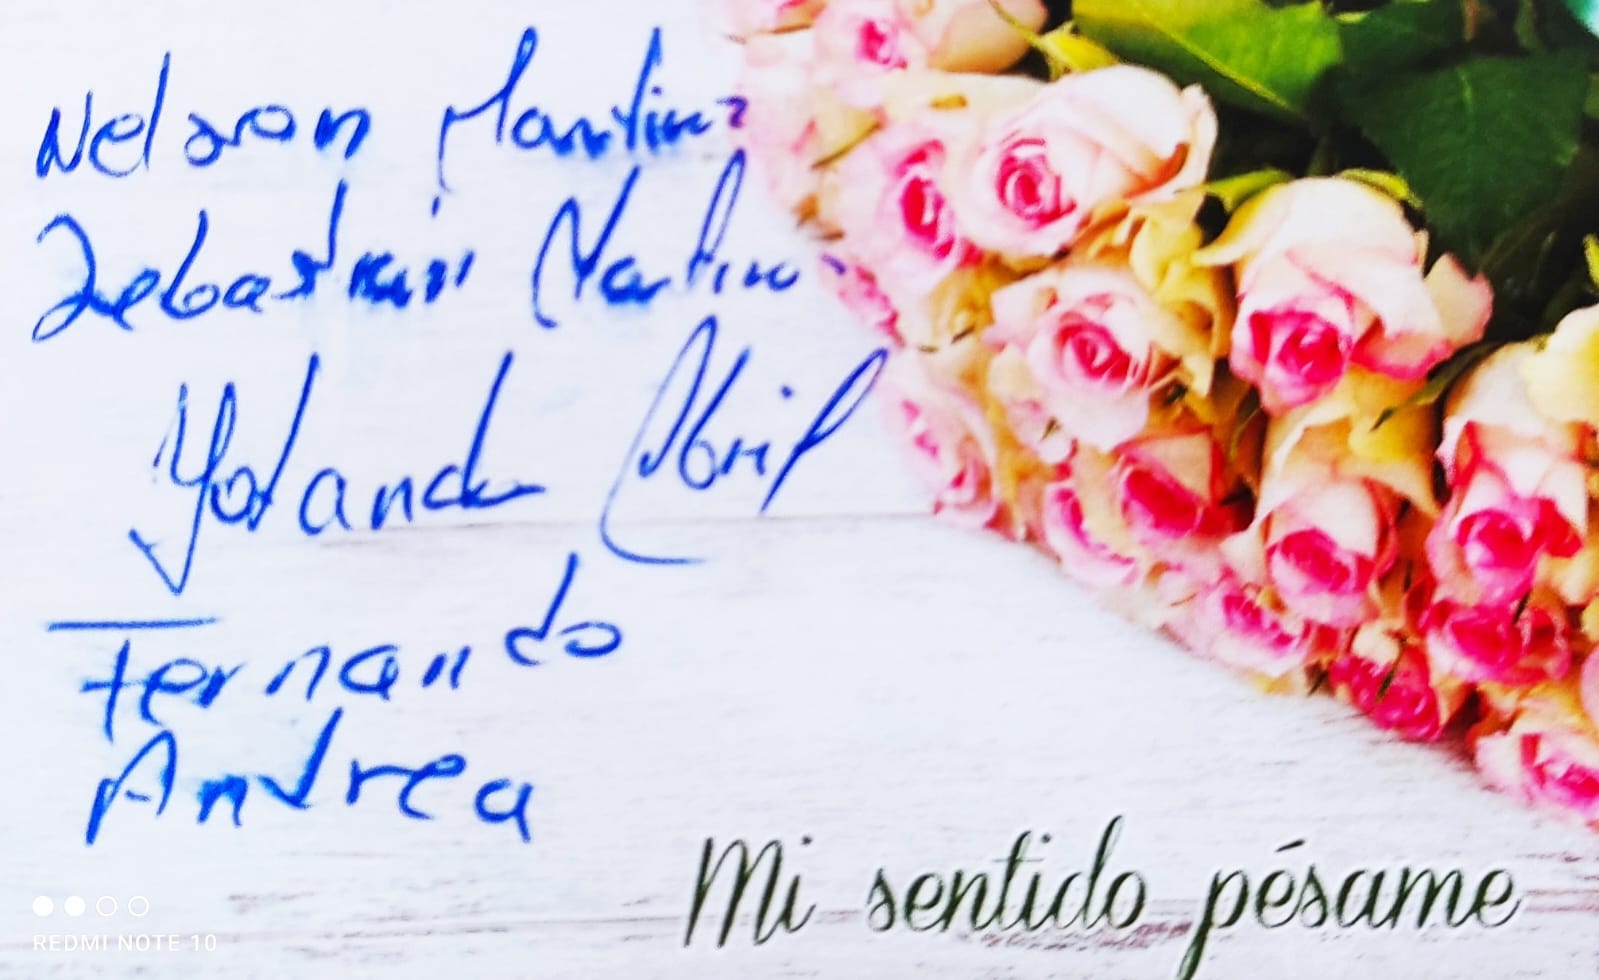 Nelson Martinz
Sebastian Martinz
Yolanda Abril
Fernando
Andrea
Mi sentido pésame
REDMI NOTE 10